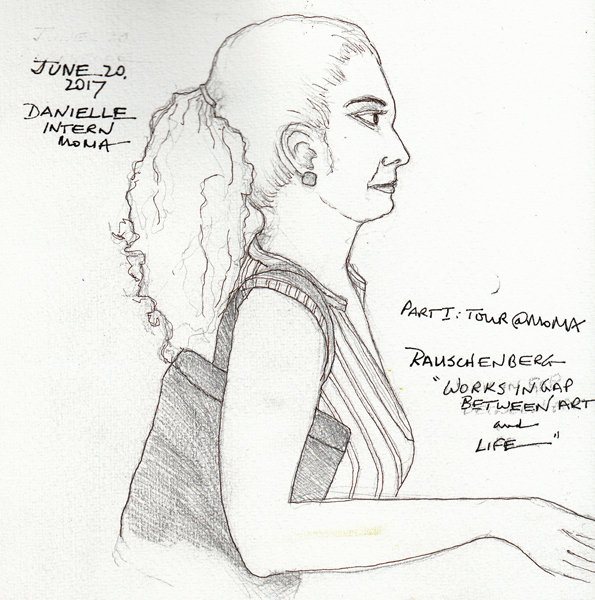 JUNE 20,
2017
DANIELLE
INTERN
MOMA
PART I: TOUR @ MOMA
RAUSCHENBERG
"WORKS IN GAP
BETWEEN ART
and
LIFE"